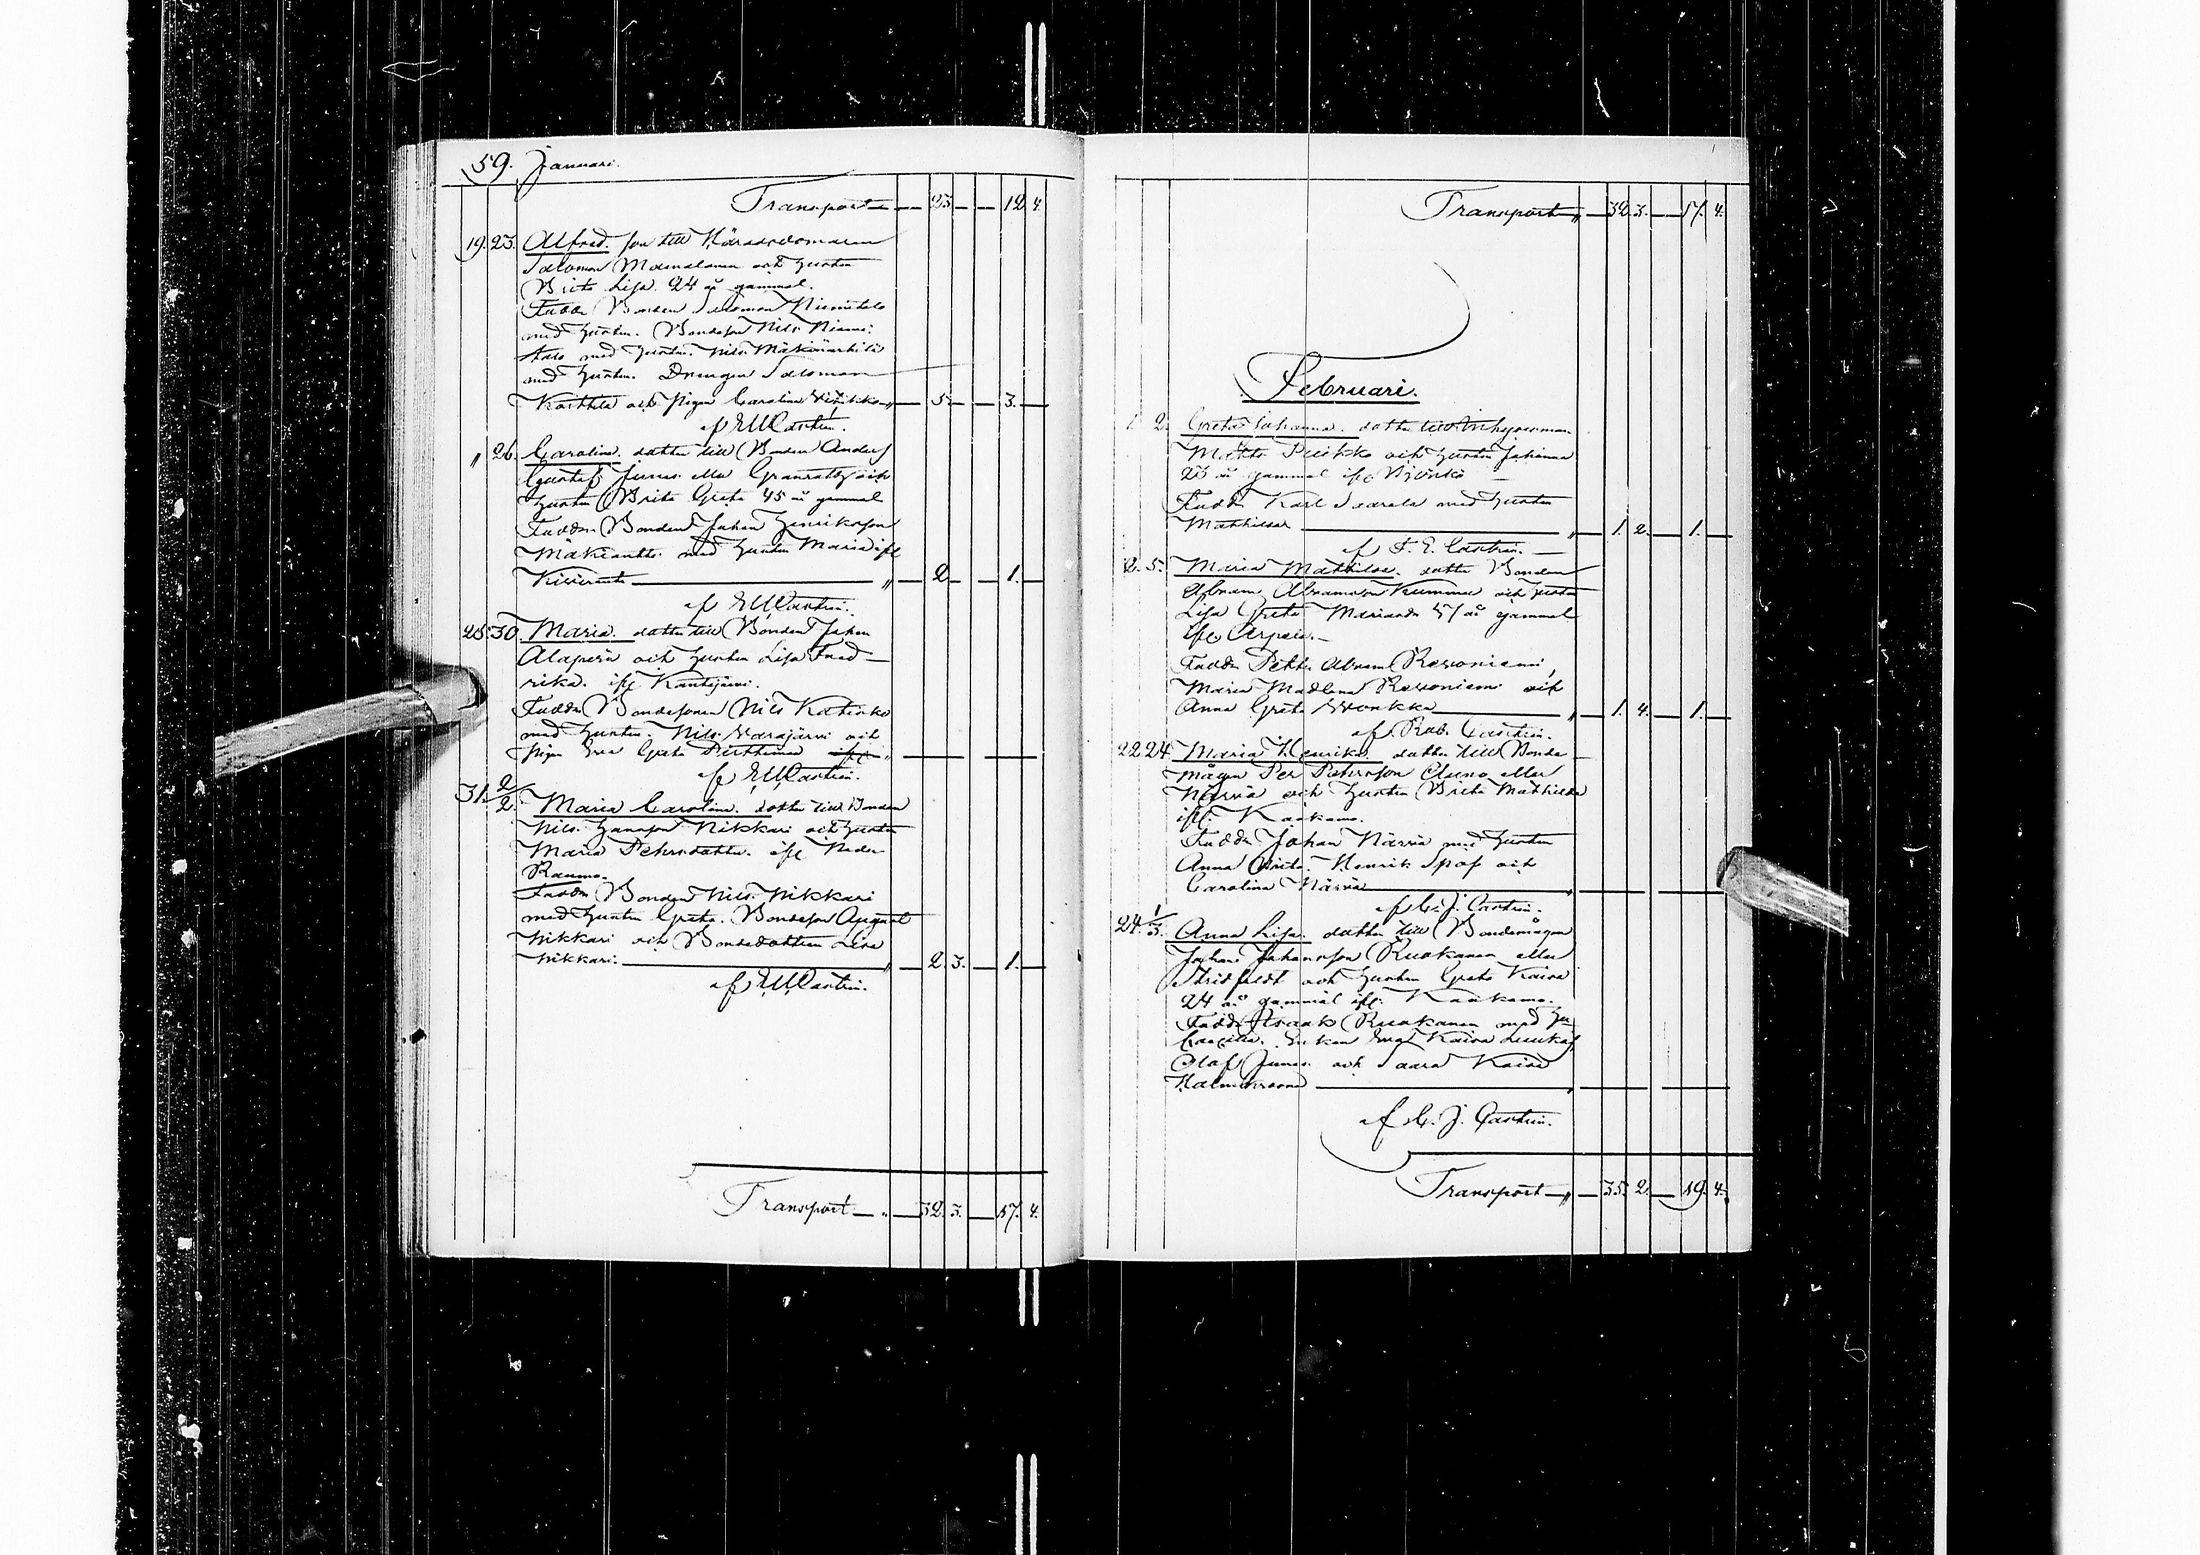 59. Januari.
Transport 23 12 4.
19. 23. Alfred. son till Häradsdomaren
Salomon och hustru
Brita Lisa 24 år gammal.
Faddr. Bonden Salomon Niemitalo
med hustru. Bondeson Nils Niemi-
talo med hustru. Nils
med hustru. Drengen Salomon
Karttila och Pigan Carolina 5. 3.
af E W Castrén.
" 26. Carolina. dotter till Bonden Anders
Gustaf Junes eller och
hustru Brita Greta 45 år gammal
Faddr. Bonden Johan Henriksson
med hustru Maria ifr
2 1.
af E W Castrén.
25. 30. Maria. dotter till Bonden Johan
Alaperä och hustru Lisa Fred-
rika. ifr Kantojärvi.
Faddr Bondesonen Nils
med hustru. Nils Varajärvi och
Pigan Eva Greta Perttunen ifr "
af E W Castrén.
31. 2/2. Maria Carolina. dotter till Bonden
Nils Hansson Nikkari och hustru
Maria Pehrsdotter. ifr Neder
Raumo.
Faddr Bonden Nils Nikkari
med hustru Greta. Bondeson August
Nikkari och Bondedottren Lisa
Nikkari. " 2. 3. 1.
af E W Castrén.
Transport 32. 3. 17. 4.
Transport " 32. 3. 17. 4.
Februari.
1 2. Greta Johanna. dotter till Inhysesman
Matts och hustru Johanna
23 år gammal ifr Björkö
Faddr Karl med hustru
Mathilda " 1. 2. 1.
af F. E. Castrén.
2. 5. Maria Mathilda. dotter Bonden
Abram Abramsson Kummu och hustru
Lisa Greta år gammal
ifr Arpela.
Faddr Pehr Abram Rovaniemi,
Maria Madlena Rovaniemi och
Anna Greta Wonkka " 1. 4. 1.
af Rob. Castrén.
22 24. Maria Henrika. dotter till Bonde
mågen Per Pehrsson Auno eller
Närvä och hustru Brita Mathilda
ifr. Kaakamo.
Faddr Johan Närvä med hustru
Anna Brita. Henrik Spof och
Carolina Närvä "
af C. J. Castrén.
24. 1/3. Anna Lisa. dotter till Bondemågen
Johan Johansson Ruokanen eller
Stridfeldt och hustru Greta Kaisa
24 år gammal ifr. Kaakamo.
Faddr Isaak Ruokanen med hu
Caecilia. Enkan Eva Kaisa Luukas,
Olof Junes och Saara Kaisa
"
af C. J. Castrén.
Transport " 35. 2. 19. 4.